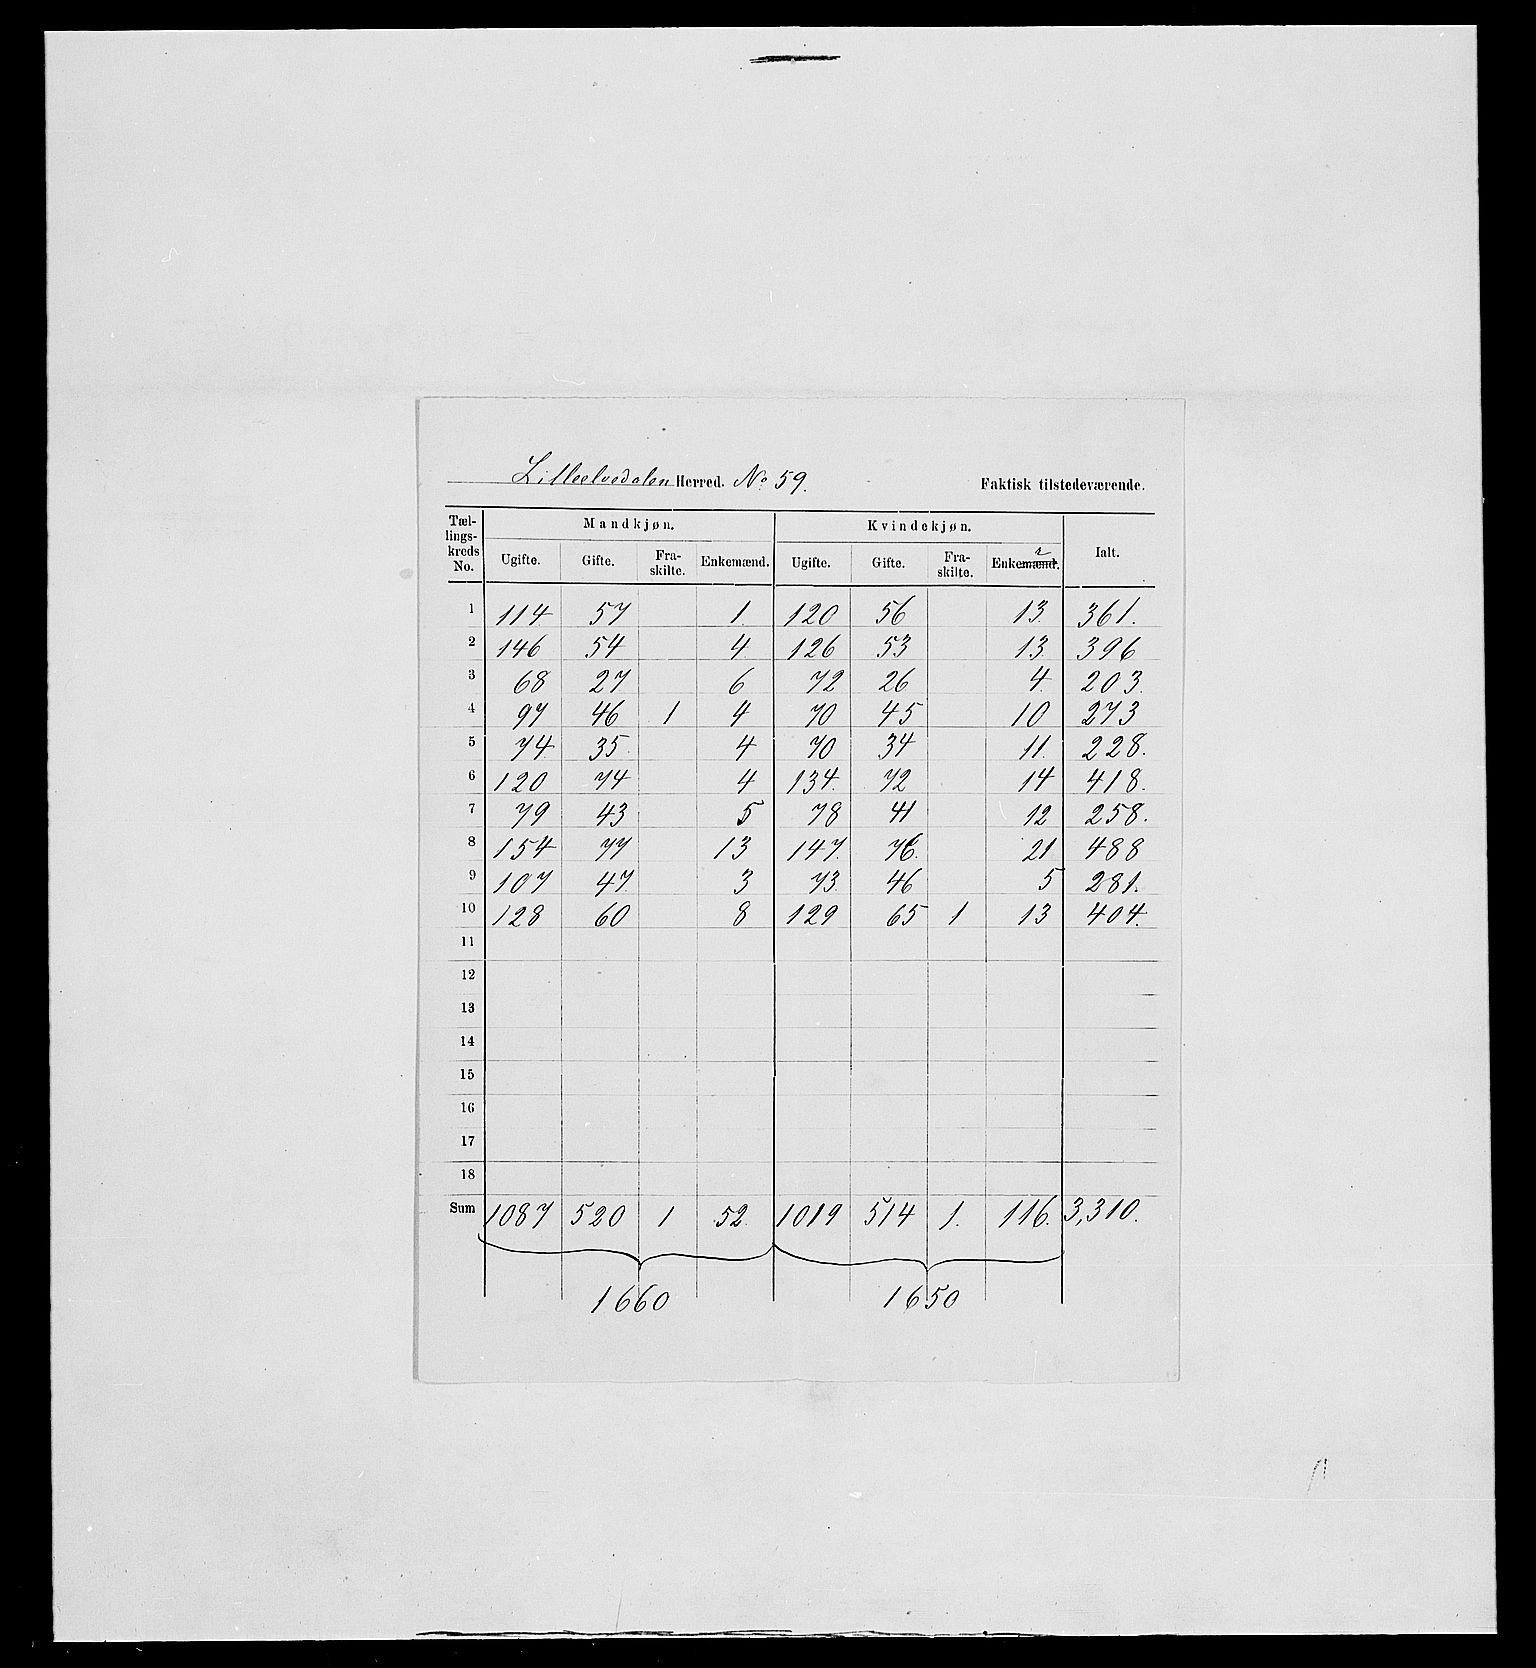 Lilleelvedalen Herred. No 59. Faktisk tilstedeværende.
Tællingskreds No. Mandkjøn. Kvindekjøn. Ialt.
Ugifte. Gifte. Fraskilte. Enkemænd. Ugifte. Gifte. Fraskilte. Enkemænd. r
1 114 57 1. 120 56 13. 361.
2 146 54 4 126 53 13 396
3 68 27 6 72 26 4. 203.
4 97 46 1 4 70 45 10 273
5 74 35 4 70 34 11. 228.
6 120 74 4 134. 72 14 418.
7 79 43 5 78 41 12 258.
8 154 77 13 147. 76. 21 488
9 107 47 3 73 46 5 281.
10 128 60 8 129 65 1 13 404.
11
12
13
14
15
16
17
18
Sum 1087 520 1 52 1019 514 1. 116. 3,310.
1660 1650